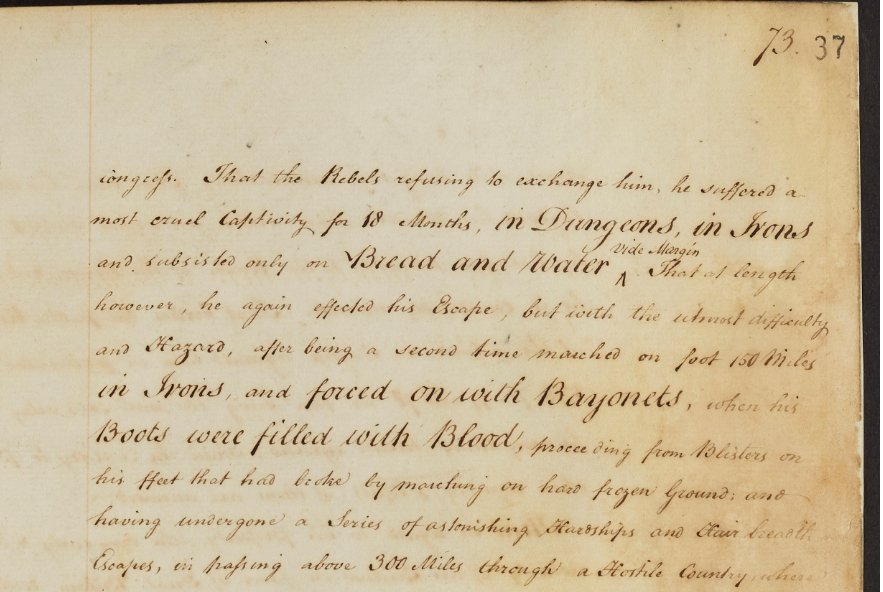 73. 37
congress. That the Rebels refusing to exchange him, he suffered a
most cruel Captivity for 18 Months, in Dungeons, in Irons
Vide Margin
and subsisted only on Bread and Water ^ . That at length
however, he again effected his Escape, but with the utmost difficulty
and Hazard, after being a second time marched on foot 150 Miles
in Irons, and forced on with Bayonets, when his
Boots were filled with Blood, proceeding from Blisters on
his ffeet that had broke by marching on hard frozen Ground; and
having undergone a Series of astonishing Hardships and Hair breadth
Escapes, in passing above 300 Miles through a Hostile Country, where